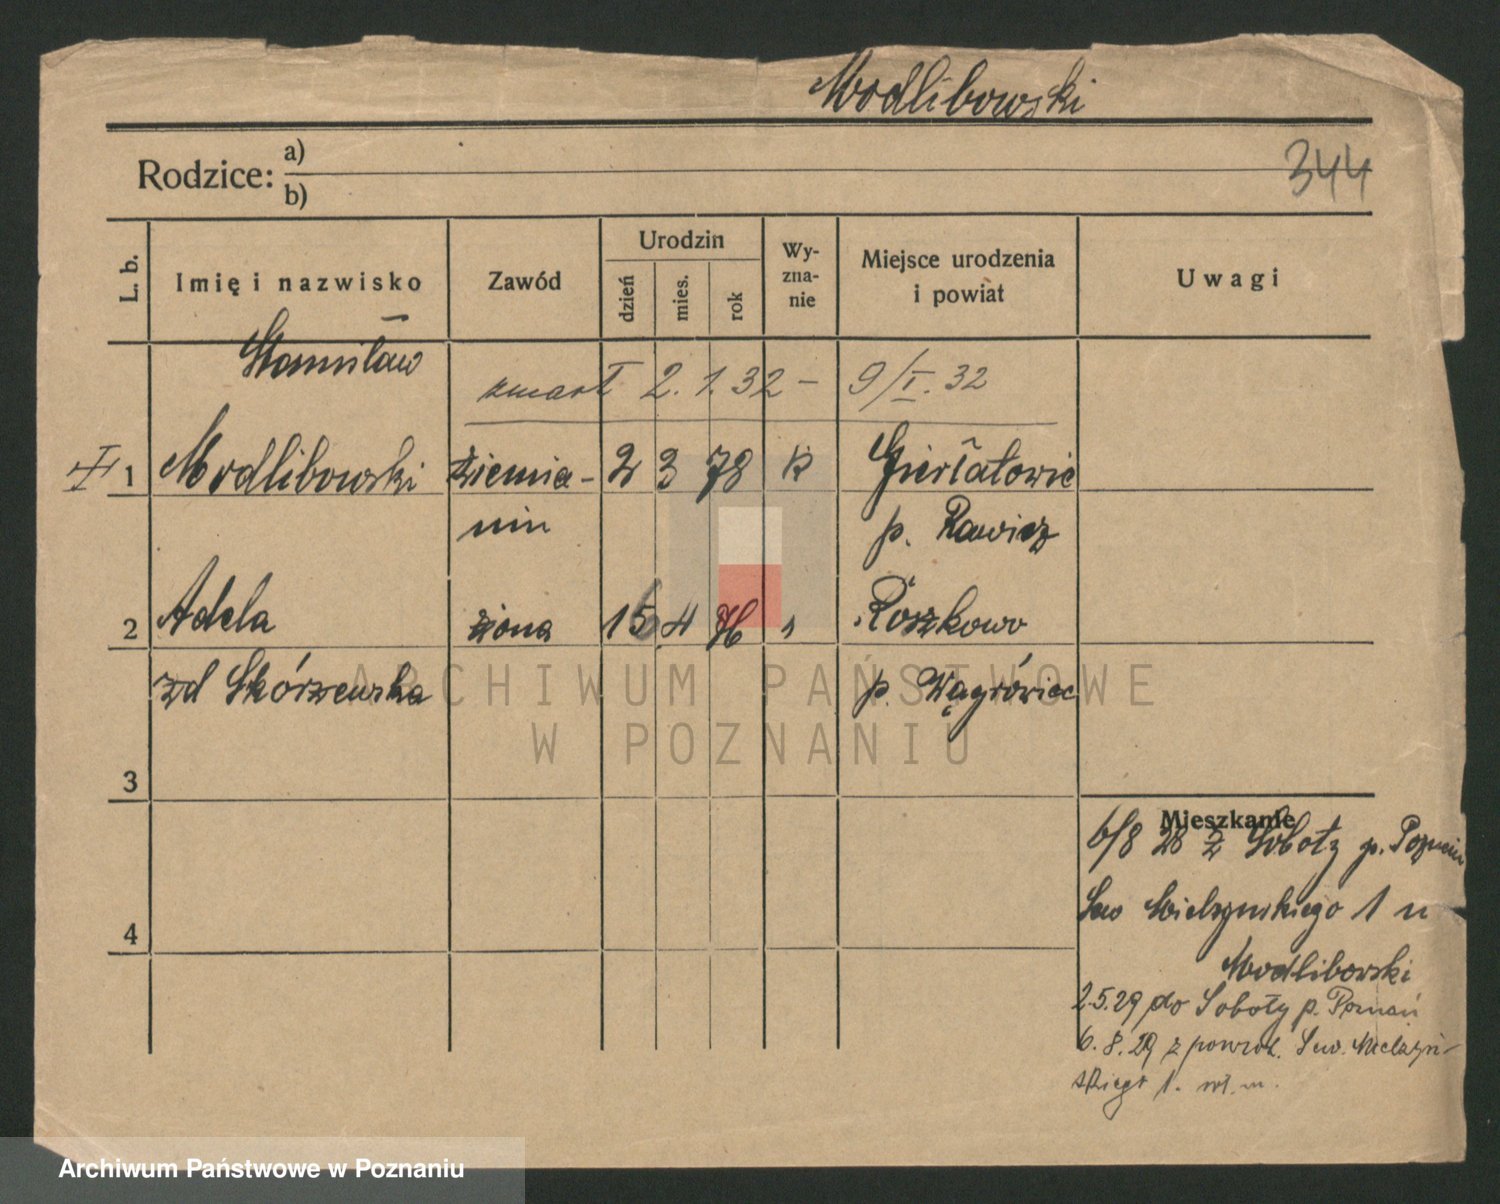 Modlibowski
344
Rodzice: a)
b)
L. b.
Imię i nazwisko
Zawód
Urodzin
dzień
mies.
rok
Wy-
zna-
nie
Miejsce urodzenia
i powiat
Uwagi
Stanisław
zmarł 2.1.32 – 9/I.32
1 Modlibowski ziemia- 2 3 78 k Gierłatowie
nin p. Rawicz
2 Adela żona 15 4 76 " Roszkowo
zd Skórzewska p. Wągrówiec
3
4
Mieszkanie
6/8 28 z Soboty p. Poznań
Sew Mielżyńskiego 1 u
Modlibowski
2.5.29 do Soboty p. Poznań
6.8.29 z powrot. Sew. Mielżyń-
skiego 1. wł. m.
ARCHIWUM PAŃSTWOWE
W POZNANIU
Archiwum Państwowe w Poznaniu